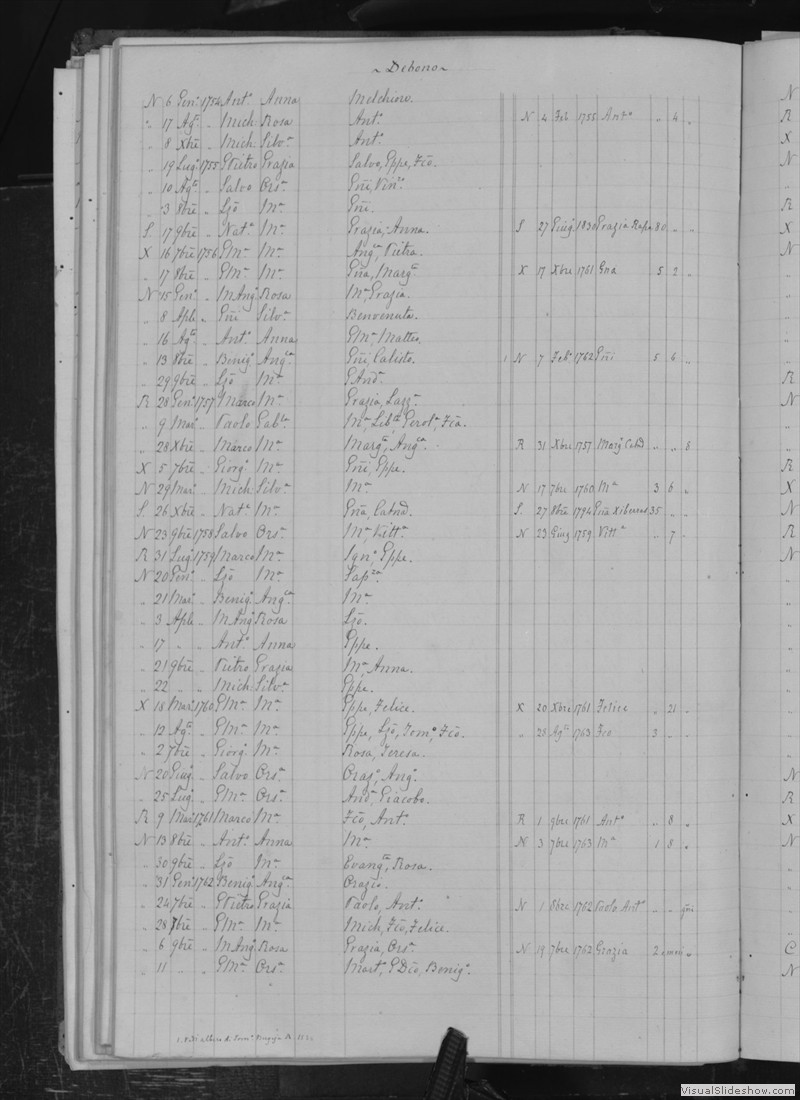 ~ Debono ~
N 6 Genº 1754 Antº Anna Melchino. N
„ 17 Agº „ Mich Rosa Antº N 4 Feb 1755 Antº „ 4 „ R
„ 8 Xbre „ Mich Silvª Antº X
„ 19 Lugº 1755 GPietro Grazia Salvo, Gppe, Fcō. N
„ 10 Agº „ Salvo Orsª Gñi, Vinº
„ 3 8bre „ Ljō Mª Gñi. R
S. 17 9bre „ Natº Mª Grazia, Anna. S 27 Giugº 1830 Grazia 80 „ „ X
X 16 7bre 1756 GMª Mª Angª, Pietra. N
„ 17 8bre „ GMª Mª Gña, Margª X 17 Xbre 1761 Gña 5 2 „
N 15 Genº „ MAngº Rosa Mª, Grazia.
„ 8 Aple „ Gñi Silvª Benvenuta.
„ 16 Agº „ Antº Anna GMª, Matteo.
„ 13 8bre „ Benigº Angª Gñi, Calisto. 1 N 7 Feb 1762 Gñi 5 4 „
„ 29 9bre „ Ljō Mª GAndª R
R 28 Genº 1757 Marco Mª Grazia, Lazzº N
„ 9 Marº „ Paolo Gabla Mª, Libta, Gerolª, Fca.
„ 28 Xbre „ Marco Mª Margª, Angª R 31 Xbre 1757 Margª Catnd „ „ 8
X 5 7bre „ Giorgº Mª Gñi, Gppe. R
N 29 Marº „ Mich Silvª Mª N 17 7bre 1760 Mª 3 6 „ X
S. 26 Xbre „ Natº Mª Gña, Catnd. S. 27 8bre 1794 Gña Xiberras 35 „ „ N
N 23 9bre 1758 Salvo Orsª Mª, Vittª N 23 Giug 1759 Vittª „ 7 „ R
R 31 Lugº 1759 Marco Mª Ignº, Gppe. N
N 20 Genº „ Ljō Mª
„ 21 Marº „ Benigº Angca Mª
„ 3 Aple „ MAngº Rosa Ljō.
„ 17 „ „ Antº Anna Gppe.
„ 21 9bre „ Pietro Grazia Mª, Anna.
„ 22 „ „ Mich Silvª Gppe.
X 18 Marº 1760 GMª Mª Gppe, Felice. X 20 Xbre 1761 Felice „ 21 „
„ 12 Agº „ GMª Mª Gppe, Ljō, Tomº, Fcō. „ 28 Agº 1763 Fco 3 „ „
„ 2 7bre „ Giorgº Mª Rosa, Teresa.
N 20 Giugº „ Salvo Orsª Orazº, Angº. N
„ 25 Lugº „ GMª Orsª Andª, Giacobo. R
R 9 Marº 1761 Marco Mª Fcō, Antº R 1 9bre 1761 Antº „ 8 „ X
N 13 8bre „ Antº Anna Mª N 3 7bre 1763 Mª 1 8 „ N
„ 30 9bre „ Ljō Mª Evangta, Rosa.
„ 31 Genº 1762 Benigº Angca Orazio.
„ 24 7bre „ GPietro Grazia Paolo, Antº N 1 8bre 1762 Paolo Antº „ „ gni
„ 28 7bre „ GMª Mª Mich, Fcō, Felice.
„ 6 9bre „ MAngº Rosa Grazia, Orsª N 19 7bre 1762 Grazia 2 „ C
„ 11 „ „ GMª Orsª Martº, GDcō, Benigº. N
VisualSlideshow.com